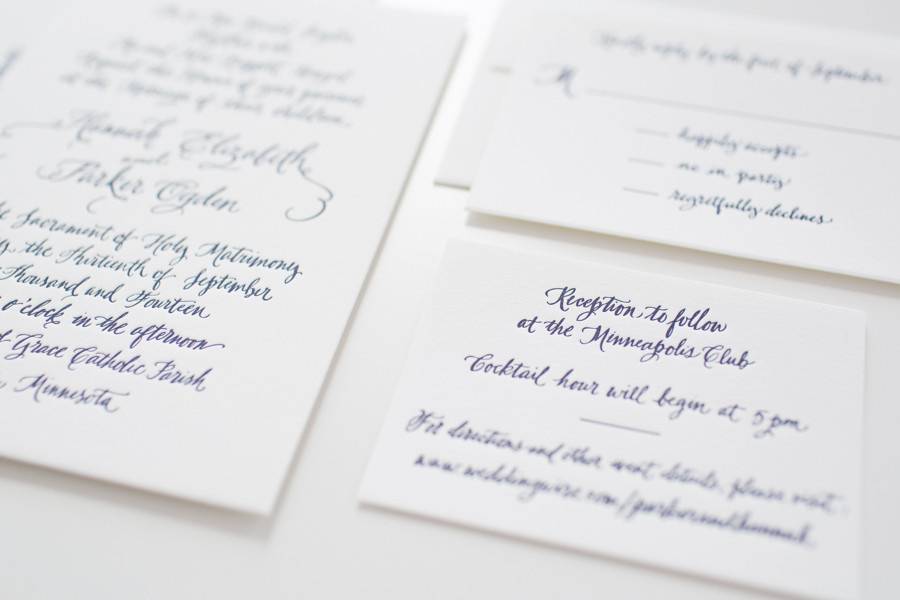 request the honor of your presence
at the marriage of their children
Hannah Elizabeth
and
Parker Ogden
the Sacrament of Holy Matrimony
the Thirteenth of September
Thousand and Fourteen
o'clock in the afternoon
Grace Catholic Parish
Minnesota
Kindly reply by the first of September
M
happily accepts
me in party
regretfully declines
Reception to follow
at the Minneapolis Club
Cocktail hour will begin at 5 pm
For directions and other event details, please visit:
www.weddingwire.com/parkerandhannah